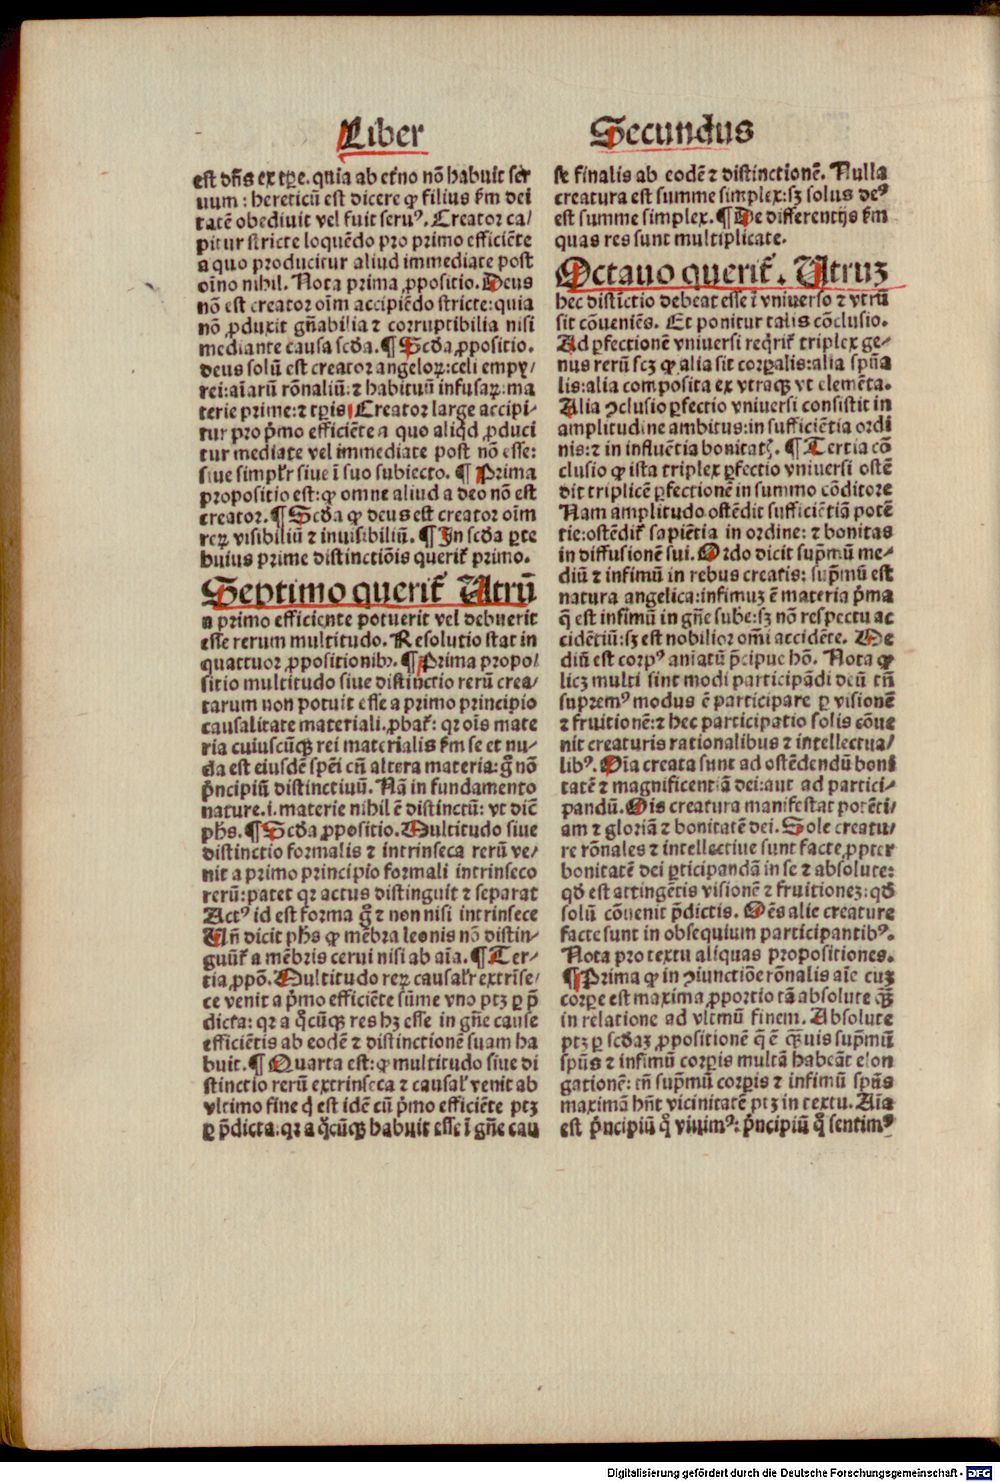 Liber
est dñs ex tp̄e. quia ab et̓no nō habuit ser
uum : hereticū est dicere ꝙ filius ẜm dei
tatē obediuit vel fuit seruꝰ. Creator ca/
pitur stricte loquēdo pro primo efficiēte
a quo producitur aliud immediate post
oīno nihil. Nota prima ꝓpositio. Deus
nō est creator oīm accipiēdo stricte: quia
nō ꝓduxit gñabilia ⁊ corruptibilia nisi
mediante causa scđa. ¶ Scđa ꝓpositio.
deus solū est creator angeloꝝ: celi empy/
rei: aīarū rōnaliū: ⁊ habituū infusaꝝ: ma
terie prime: ⁊ tp̄is Creator large accipi/
tur pro pͥmo efficiēte a quo aliqd ꝓduci
tur mediate vel immediate post nō esse:
siue simplr̓ siue ī suo subiecto. ¶ Prima
propositio est: ꝙ omne aliud a deo nō est
creator. ¶ Scđa ꝙ deus est creator oīm
reꝝ visibiliū ⁊ inuisibiliū. ¶ In scđa ꝑte
huius prime distinctiōis querit̓ primo.
Septimo querit̓ Utrū
a primo efficiente potuerit vel debuerit
esse rerum multitudo. Resolutio stat in
quattuor ꝓpositionibꝫ. ¶ Prima propo/
sitio multitudo siue distinctio rerū crea/
tarum non potuit esse a primo principio
causalitate materiali. ꝓbat̓: qꝛ oīs mate
ria cuiuscūqꝫ rei materialis ẜm se et nu/
da est eiusdē spēi cū altera materia: gͦ nō
pͥncipiū distinctiuū. Nā in fundamento
nature. i. materie nihil ē distinctū: vt dicē
ph̄s. ¶ Scđa ꝓpositio. Multitudo siue
distinctio formalis ⁊ intrinseca rerū ve/
nit a primo principio formali intrinseco
rerū: patet qꝛ actus distinguit ⁊ separat
Actꝰ id est forma gͦ ⁊ non nisi intrinsece
Uñ dicit ph̄s ꝙ mēbra leonis nō distin/
guūt̓ a mēbris cerui nisi ab aīa. ¶ Ter/
tia ꝓpō. Multitudo reꝝ causalr̓ extrīse/
ce venit a pͥmo efficiēte sūme vno ptꝫ ꝑ p̄
dicta: qꝛ a qͦcūqꝫ res hꝫ esse in gñe cause
efficiētis ab eodē ⁊ distinctionē suam ha
buit. ¶ Quarta est: ꝙ multitudo siue di
stinctio rerū extrinseca ⁊ causal̓ venit ab
vltimo fine qͥ est idē cū pͥmo efficiēte ptꝫ
ꝑ p̄dicta. qꝛ a qͦcūqꝫ habuit esse ī gñe cau
Secundus
se finalis ab eodē ⁊ distinctionē. Nulla
creatura est summe simplex: sꝫ solus deꝰ
est summe simplex. ¶ De differentijs ẜm
quas res sunt multiplicate.
Octauo querit̓. Utruꝫ
hec distīctio debeat esse ī vniuerso ⁊ vtrū
sit cōueniēs. Et ponitur talis cōclusio.
Ad ꝑfectionē vniuersi reqͥrit̓ triplex ge/
nus rerū scꝫ ꝙ alia sit corꝑalis: alia spūa
lis: alia composita ex vtraqꝫ vt elemēta.
Alia ꝯclusio ꝑfectio vniuersi consistit in
amplitudine ambitus: in sufficiētia ordi
nis: ⁊ in influētia bonitat. ¶ Tertia cō
clusio ꝙ ista triplex ꝑfectio vniuersi ostē
dit triplicē ꝑfectionē in summo cōditore
Nam amplitudo ostēdit sufficiētiā potē
tie: ostēdit̓ sapiētia in ordine: ⁊ bonitas
in diffusionē sui. Ordo dicit supͥmū me/
diū ⁊ infimū in rebus creatis: supͥmū est
natura angelica: infimuꝫ ē materia pͥma
q̄ est infimū in gñe sube: sꝫ nō respectu ac
cidētiū: sꝫ est nobilior om̄i accidēte. Me
diū est corpꝰ aniatū p̄cipue hō. Nota ꝙ
licꝫ multi sint modi participādi deū tñ
supremꝰ modus ē participare ꝑ visionē
⁊ fruitionē: ⁊ hec participatio solis cōue
nit creaturis rationalibus ⁊ intellectua/
libꝰ. Oīa creata sunt ad ostēdendū boni
tatē ⁊ magnificentiā dei: aut ad partici/
pandū. Oīs creatura manifestat potēti/
am ⁊ gloriā ⁊ bonitatē dei. Sole creatu/
re rōnales ⁊ intellectiue sunt facte ꝓpter
bonitatē dei ꝑticipandā in se ⁊ absolute:
qđ est attingētis visionē ⁊ fruitioneꝫ: qđ
solū cōuenit p̄dictis. Oēs alie creature
facte sunt in obsequium participantibꝰ.
Nota pro textu aliquas propositiones.
¶ Prima ꝙ in ꝯiunctiōe rōnalis aīe cuꝫ
corꝑe est maxima ꝓportio tā absolute qꝫ
in relatione ad vltimū finem. Absolute
ptꝫ ꝑ scđaꝫ ꝓpositionē q̄ ē qꝫuis supͥmū
spūs ⁊ infimū corꝑis multā habeāt elon
gationē: tñ supͥmū corꝑis ⁊ infimū spūs
maximā hñt vicinitatē ptꝫ in textu. Aīa
est pͥncipiū qͦ viuimꝰ: pͥncipiū qͦ sentimꝰ
Digitalisierung gefördert durch die Deutsche Forschungsgemeinschaft - DFG